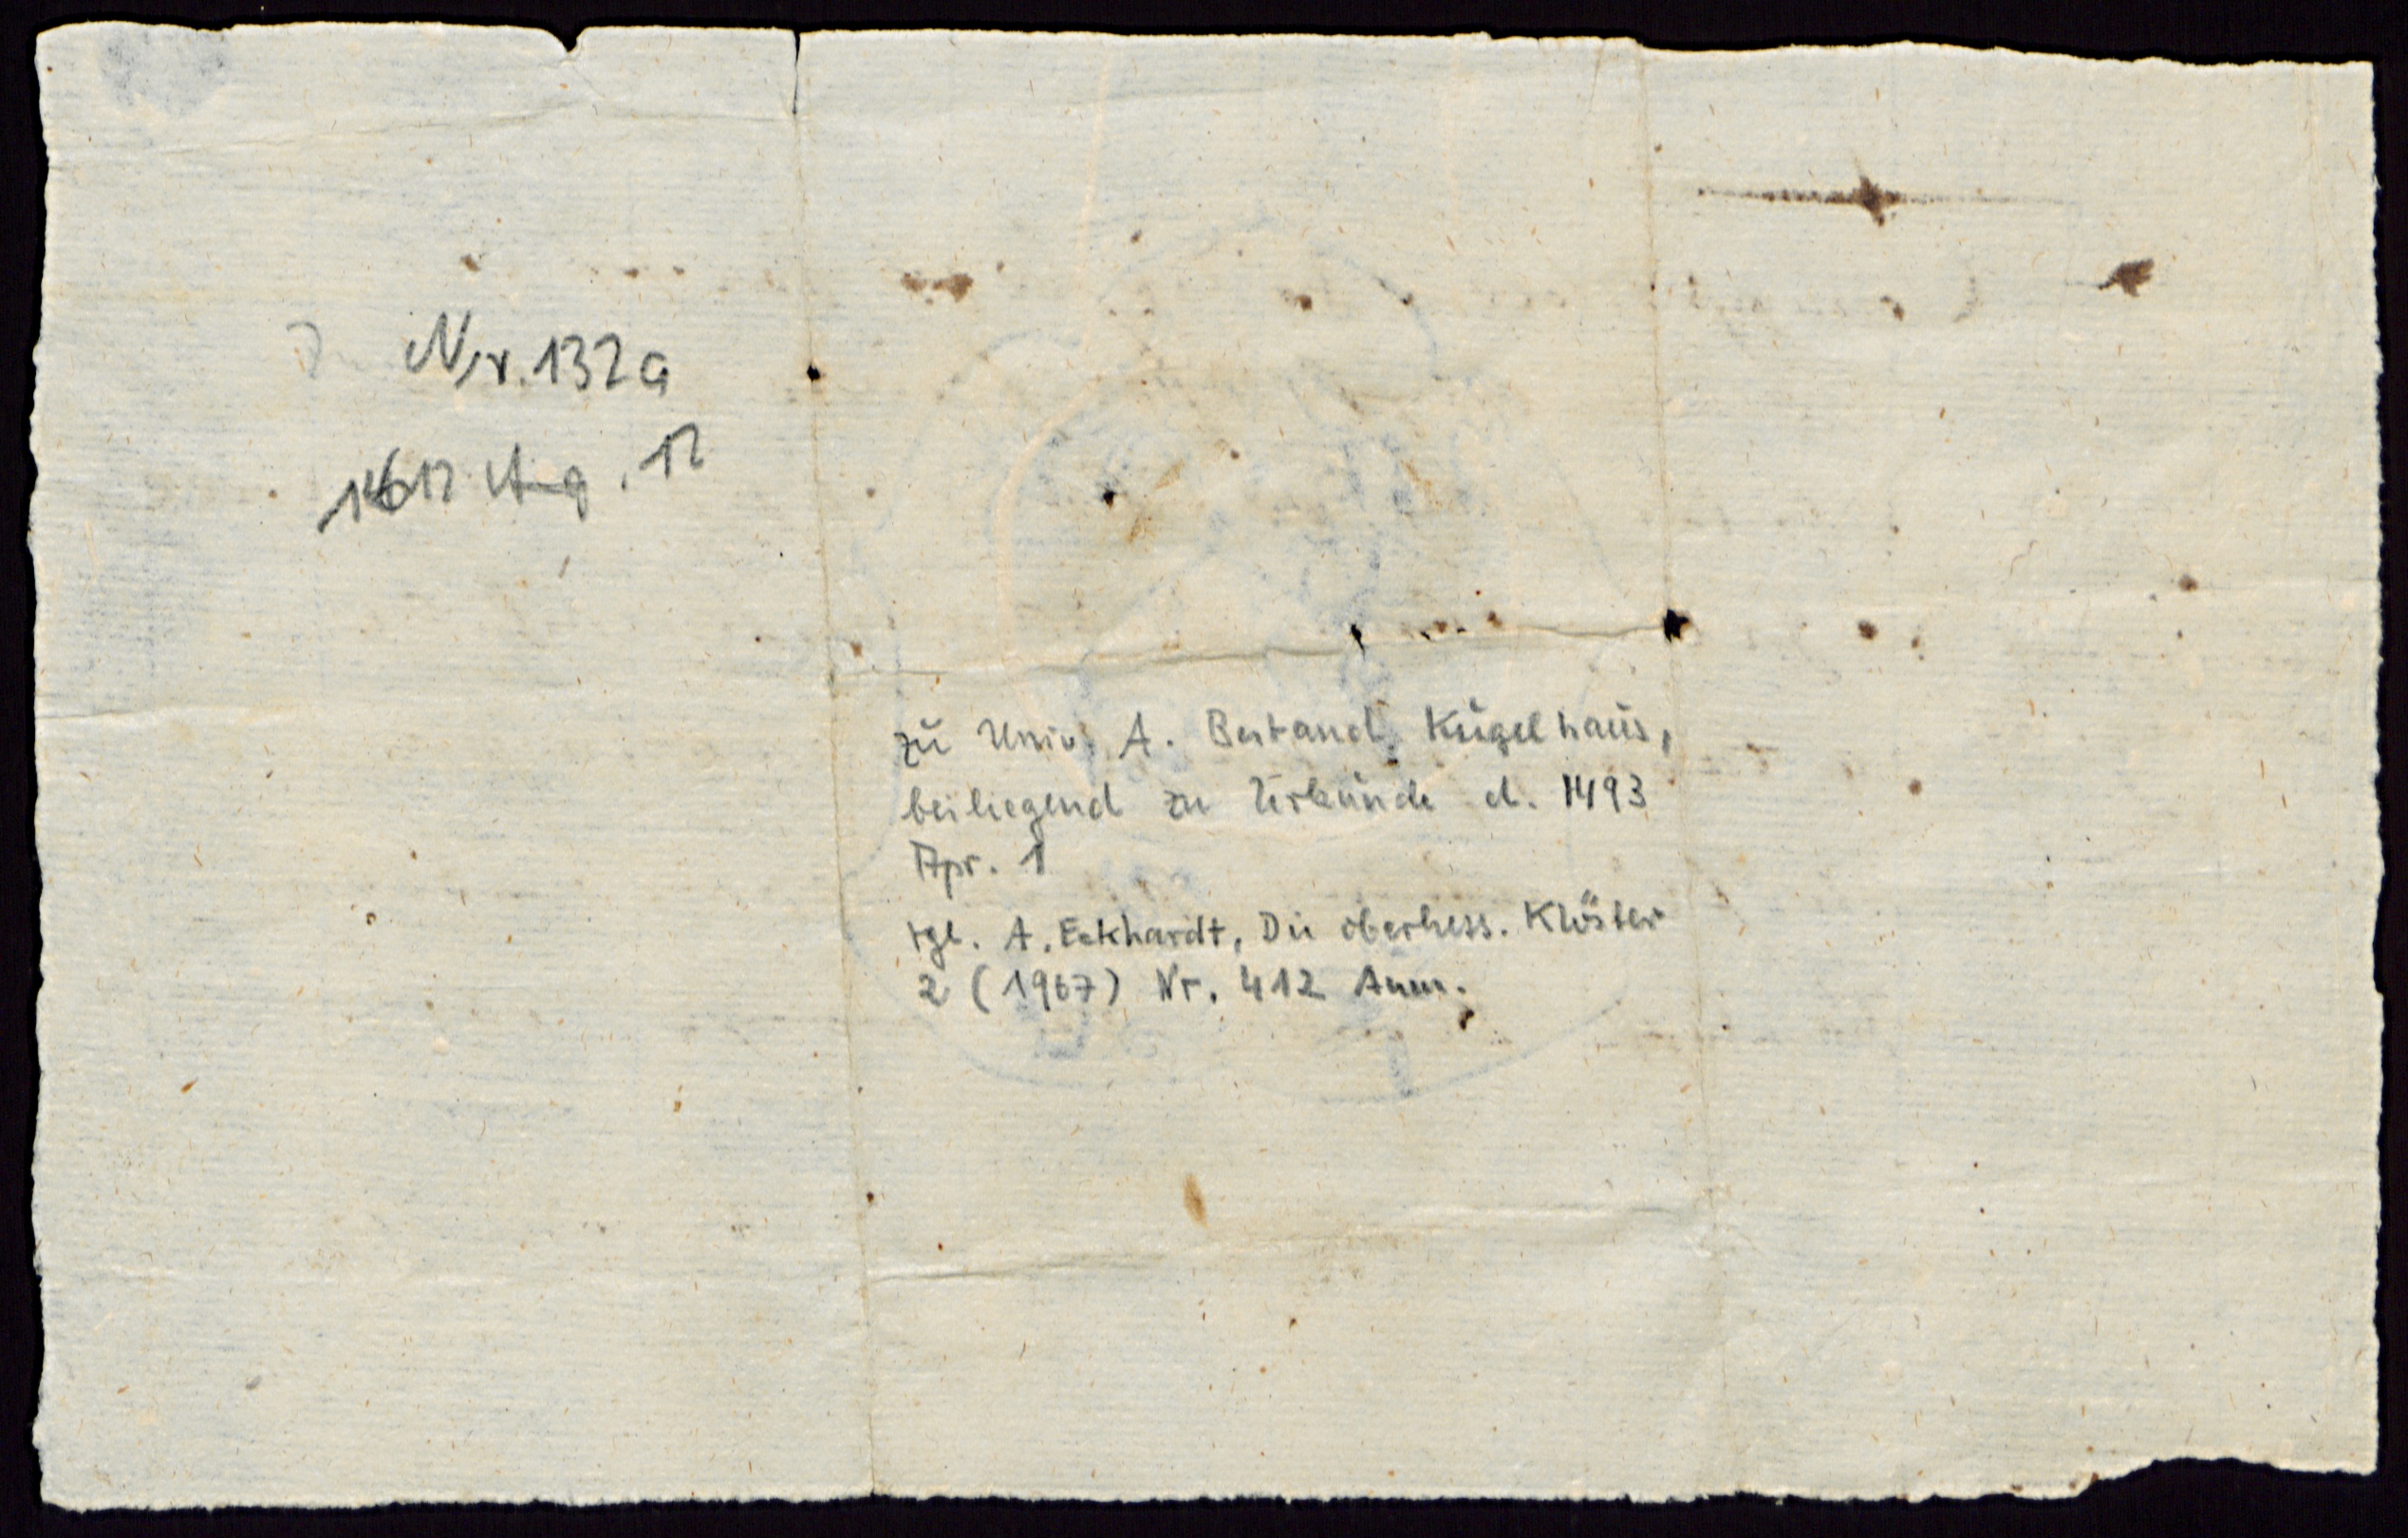 Nr. 132a
1612 Aug. 12
zu Univ. A. Bestand Kugelhaus,
beiliegend zu Urkunde d. 1493
Apr. 1
vgl. A. Eckhardt, Die oberhess. Klöster
2 (1967) Nr. 412 Anm.